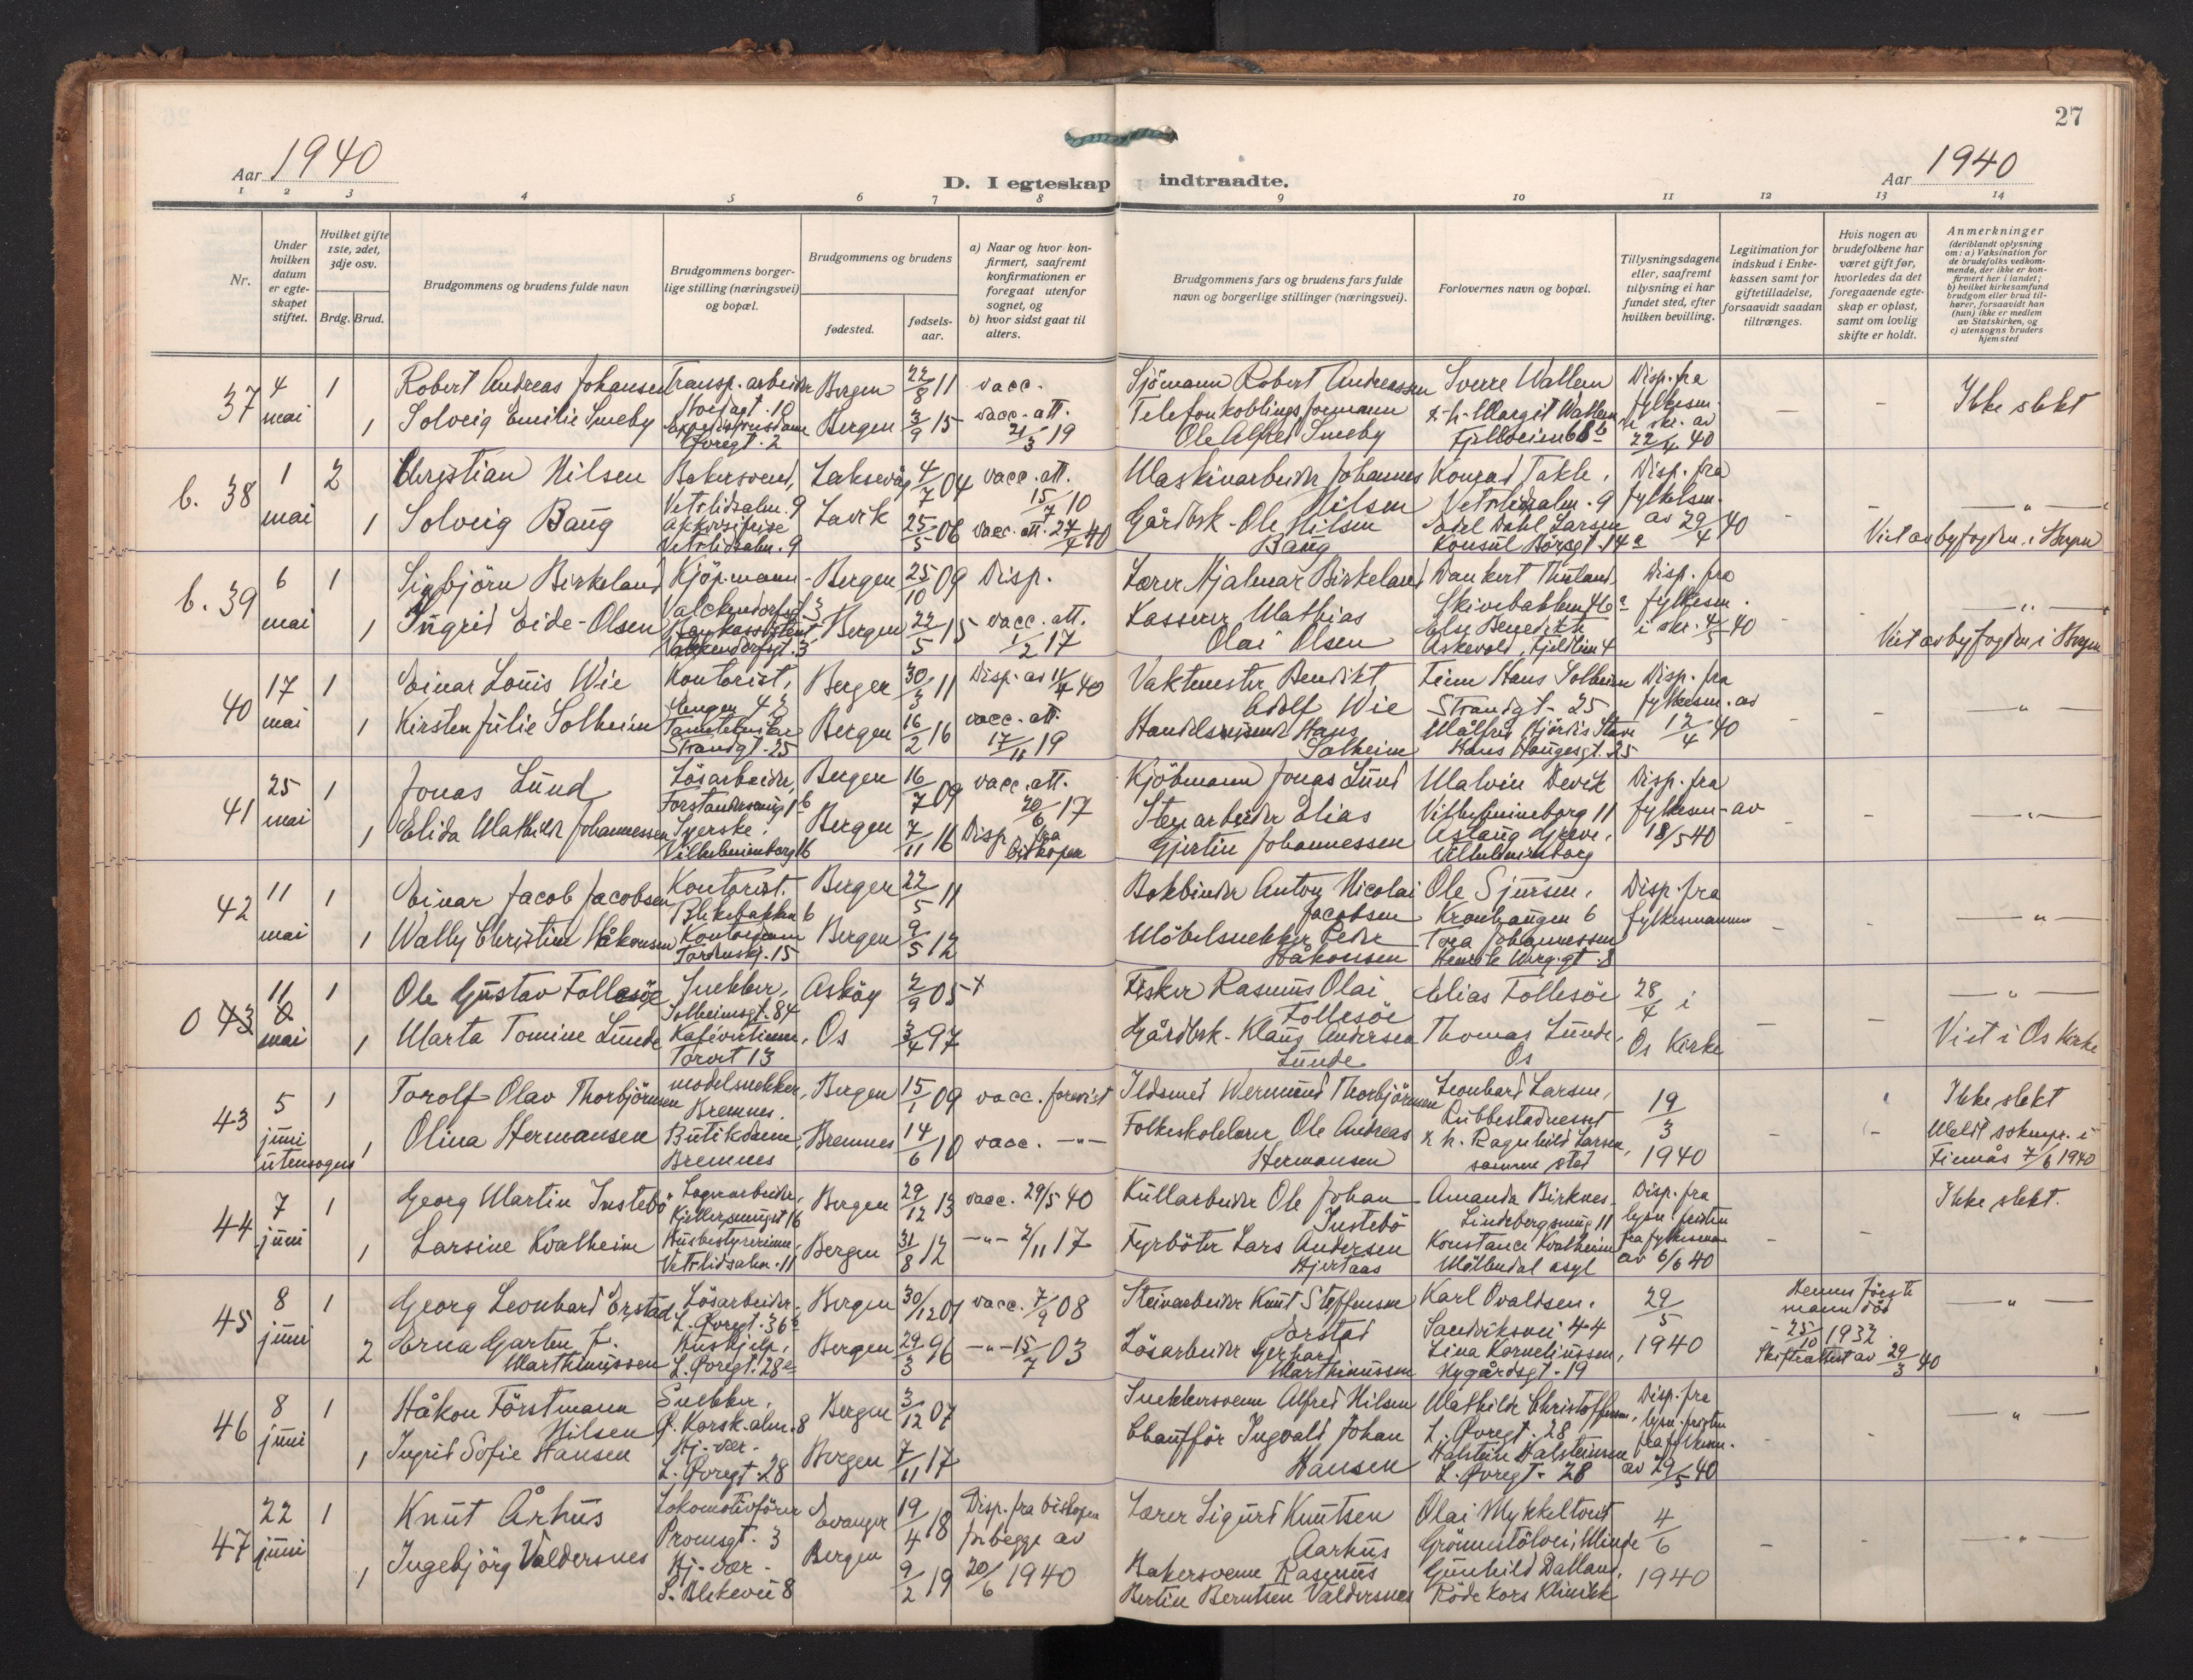 27
Aar 1940
D. I egteskap indtraadte.
Aar 1940
1 2 3 4 5 6 7 8 9 10 11 12 13 14
Nr.
Under hvilken datum er egteskapet stiftet.
Hvilket gifte 1ste, 2det, 3dje osv.
Brdg. Brud.
Brudgommens og brudens fulde navn
Brudgommens borgerlige stilling (næringsvei) og bopæl.
Brudgommens og brudens
fødested.
fødselsaar.
a) Naar og hvor konfirmert, saafremt konfirmationen er foregaat utenfor sognet, og
b) hvor sidst gaat til alters.
Brudgommens fars og brudens fars fulde navn og borgerlige stillinger (næringsvei).
Forlovernes navn og bopæl.
Tillysningsdagene eller, saafremt tillysning ei har fundet sted, efter hvilken bevilling.
Legitimation for indskud i Enkekassen samt for giftetilladelse, forsaavidt saadan tiltrænges.
Hvis nogen av brudefolkene har været gift før, hvorledes da det foregaaende egteskap er opløst, samt om lovlig skifte er holdt.
Anmerkninger
(deriblandt oplysning om: a) Vaksination for de brudefolks vedkommende, der ikke er konfirmert her i landet; b) hvilket kirkesamfund brudgom eller brud tilhører, forsaavidt han (hun) ikke er medlem av Statskirken, og c) utensogns bruders hjemsted
37 4 mai 1 Robert Andreas Johansen Transp. arbeider Bergen 22/8 11 vacc. Sjömann Robert Andreassen Sverre Wallem Disp. fra fylkesm. Ikke slekt
1 Solveig Emilie Smeby Øvregt. 2 Bergen 3/9 15 vacc. att. 21/3 19 Telefonkoblingsformann Ole Alfred Smeby Margit Wallem Fjellveien 68b skr. av 22/4 40
b. 38 1 mai 2 Christian Nilsen Bakersvend, Vetrlidsalm. 9 Laksevåg 4/7 04 vacc. att. 15/7 10 Maskinarbeider Johannes Nilsen Konrad Takle, Vetrlidsalm. 9 Disp. fra fylkesm. av 29/4 40
1 Solveig Baug Vetrlidsalm. 9 Lavik 25/5 06 vacc. att. 27/4 40 Gårdbrk. Ole Nilsen Baug Dahl Larsen Konsul Börsgt. 14a Viet av byfogden i Bergen
b. 39 6 mai 1 Sigbjörn Birkeland Kjöpmann Valckendorfsgt. 3 Bergen 25/10 09 Disp. Lærer Hjalmar Birkeland Dankert Thuland, Skivebakken 46a Disp. fra fylkesm. i skr. 4/5 40
1 Ingrid Eide-Olsen Valckendorfsgt. 3 Bergen 22/5 15 vacc. att. 1/2 17 Kasserer Mathias Olai Olsen Else Benedikte Askevold, Fjeldlien 4 Viet av byfogden i Bergen
40 17 mai 1 Einar Louis Wie Kontorist, Engen 42 Bergen 30/3 11 Disp. av 11/4 40 Vaktmester Benedikt Adolf Wie Finn Hans Solheim Strandgt. 25 Disp. fra fylkesm. av 12/4 40
1 Kirsten Julie Solheim Strandgt. 25 Bergen 16/2 16 vacc. att. 17/11 19 Hans Solheim Målfrid Hjördis Stave Hans Haugesgt. 25
41 25 mai 1 Jonas Lund Lösarbeider, Forstandersmug 1b Bergen 16/7 09 vacc. att. 20/6 17 Kjöbmann Jonas Lund Malvin Devik Vilhelmineborg 11 Disp. fra fylkesm. av 18/5 40
1 Elida Mathilde Johannessen Syerske, Vilhelmineborg 16 Bergen 7/11 16 Disp. fra biskopen Stenarbeider Elias Gjertin Johannessen Aslaug Greve, Vilhelmineborg
42 11 mai 1 Einar Jacob Jacobsen Kontorist, Blekebakken 6 Bergen 22/5 11 Bokbinder Anton Nicolai Jacobsen Ole Sjursen, Kronhaugen 6 Disp. fra fylkesmannen
1 Wally Christine Håkonsen Kontordame Tordenskj. 15 Bergen 9/5 12 Möbelsnekker Peder Håkonsen Tora Johannessen Henrik Wergl.gt. 8
0 43 11 mai 1 Ole Gustav Follesöe Snekker, Solheimsgt. 84 Asköy 2/9 05 Fisker Rasmus Olai Follesöe Elias Follesöe 28/4 i Os Kirke
1 Marta Tomine Lunde Kafévertinne, Torvet 13 Os 3/4 97 Gårdbrk. Klaus Andersen Lunde Thomas Lunde, Os Viet i Os Kirke
43 5 juni utensogns 1 Torolf Olav Thorbjörnsen modelsnekker, Bremnes. Bergen 15/1 09 vacc. forevist Ildsmed Wermund Thorbjörnsen Leonhard Larsen, Rubbestadnesset 19/3 1940 Ikke slekt
1 Olina Hermansen Butikdame, Bremnes Bremnes 14/6 10 vacc. -"- Folkeskolelærer Ole Andreas Hermansen Ragnhild Larsen, samme sted Meldt soknepr. i Finnås 7/6 1940
44 7 juni 1 Georg Martin Instebö Lagerarbeider, Bergen 29/12 13 vacc. 29/5 40 Kullarbeider Ole Johan Instebö Amanda Birknes, Lindebergsmug 11 Disp. fra lysn. fristen fra fylkesmann av 6/6 40 Ikke slekt.
1 Larsine Kvalheim Husbestyrerinne, Vetrlidsalm. 11 Bergen 31/8 12 -"- 2/11 17 Fyrböter Lars Andersen Hjertaas Konstance Kvalheim Möllendal asyl
45 8 juni 1 Georg Leonhard Örstad Lösarbeider, L. Øvregt. 36a Bergen 30/12 01 vacc. 7/9 08 Steinarbeider Knut Steffensen Örstad Karl Ovaldsen, Sandviksvei 44 29/5 1940 Hennes förste mann död 25/10 1932. Skifteattest av 29/3 40
2 Erna Garten f. Marthinussen Hushjelp, L. Øvregt. 28a Bergen 29/3 96 -"- 15/7 03 Lösarbeider Gerhard Marthinussen Lina Kornelinssen, Nygårdsgt. 19
46 8 juni 1 Håkon Förstmann Nilsen Snekker, Ø. Korsk.alm. 8 Bergen 3/12 07 Snekkersvenn Alfred Nilsen Mathilde Christoffersen, L. Øvregt. 28 Disp. fra lysn. fristen fra fylkesm. av 29/5 40
1 Ingrid Sofie Hansen Hj. vær. L. Øvregt. 28 Bergen 7/11 17 Chaufför Ingvald Johan Hansen Halstein Halsteinsen L. Øvregt. 28
47 22 juni 1 Knut Århus Lokomotivförer Promsgt. 3 Evanger 19/4 18 Disp. fra biskopen for begge av 20/6 1940 Lærer Sigurd Knutsen Aarhus Olai Mykkeltveit Grönnestölvei, Minde 4/6 1940
1 Ingebjörg Valdersnes Hj. vær. S. Blekevei 8 Bergen 9/2 19 Bakersvenn Rasmus Bertin Berntsen Valdersnes Gunhild Dalland, Röde Kors Klinikk